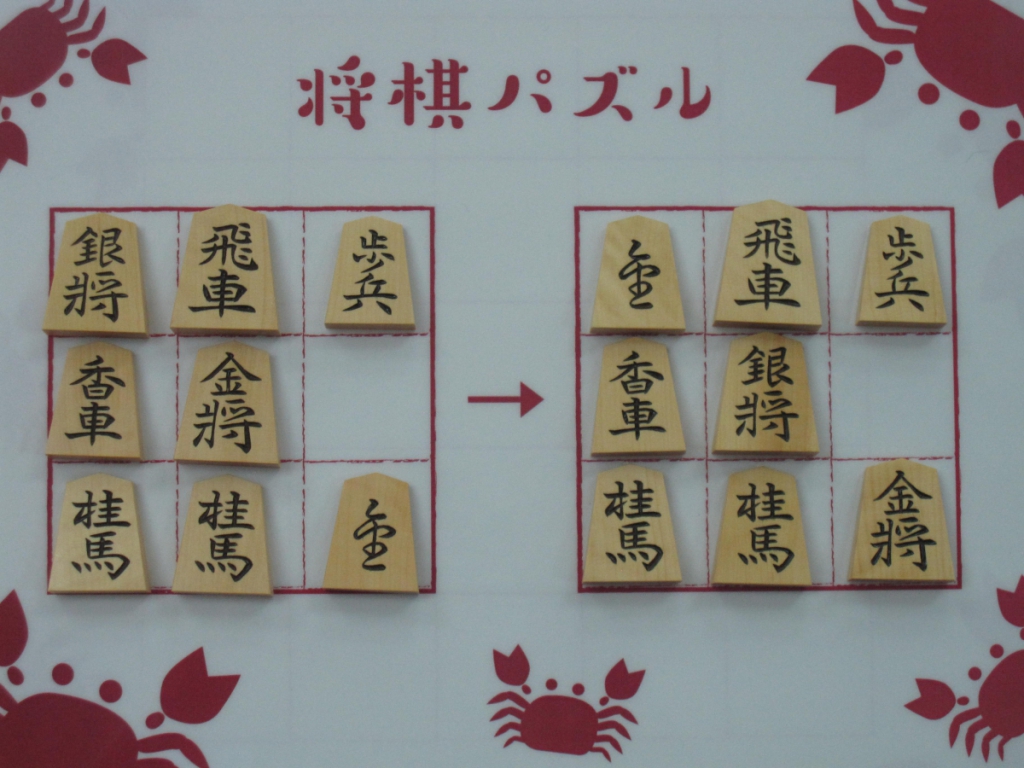 将棋パズル
銀将
飛車
歩兵
香車
金将
桂馬
桂馬
飛車
歩兵
香車
銀将
桂馬
桂馬
金将